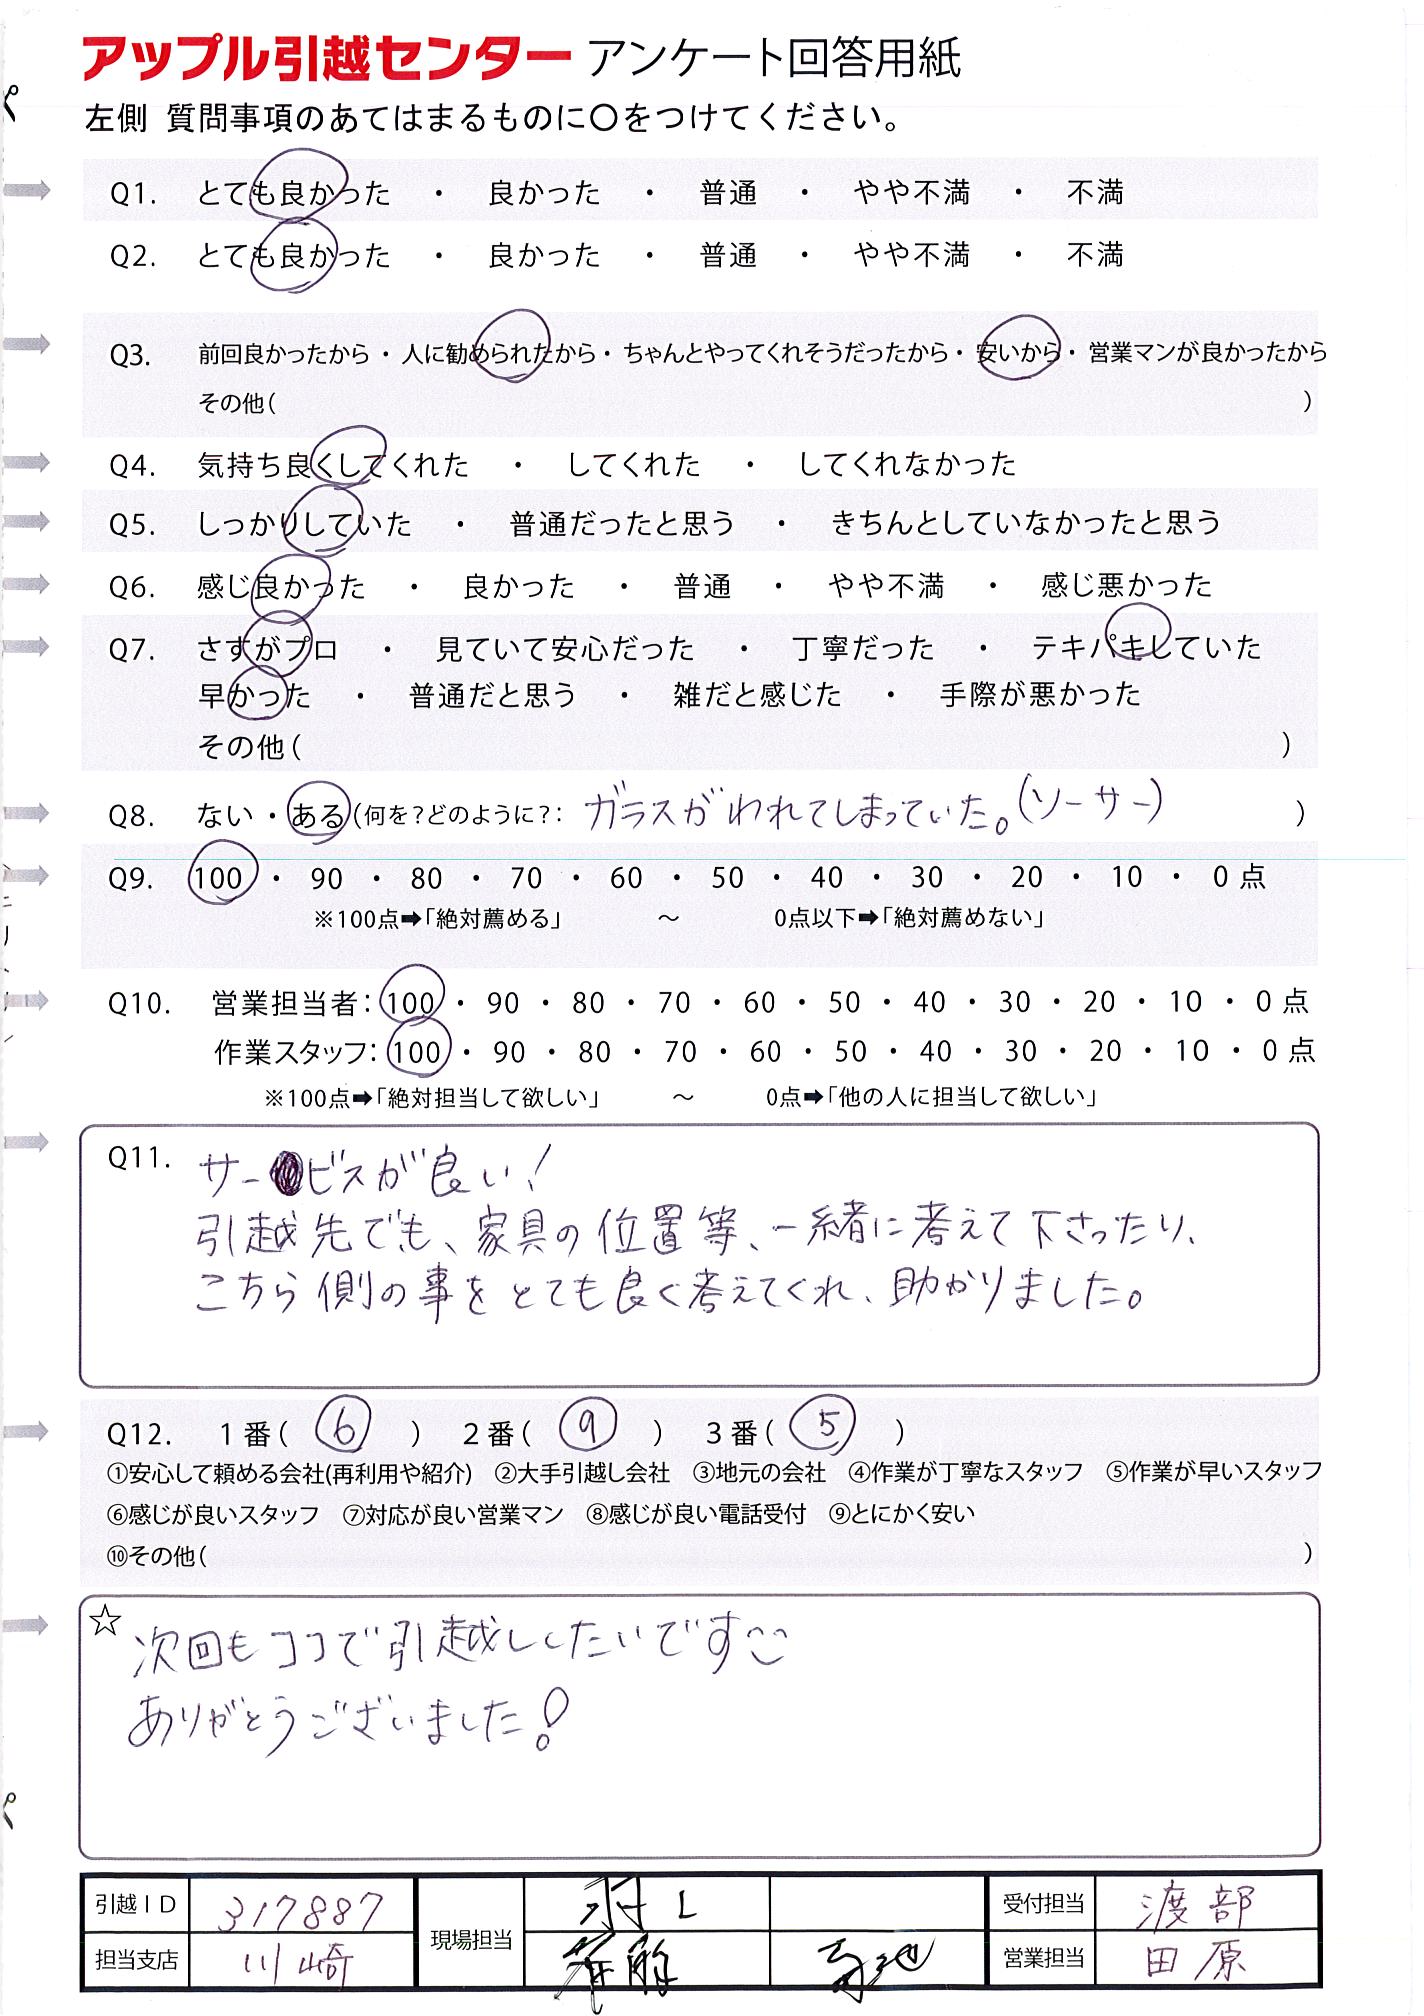 アップル引越センター アンケート回答用紙
左側 質問事項のあてはまるものに〇をつけてください。
Q1. とても良かった ・ 良かった ・ 普通 ・ やや不満 ・ 不満
Q2. とても良かった ・ 良かった ・ 普通 ・ やや不満 ・ 不満
Q3. 前回良かったから・人に勧められたから・ちゃんとやってくれそうだったから・安いから・営業マンが良かったから
その他( )
Q4. 気持ち良くしてくれた ・ してくれた ・ してくれなかった
Q5. しっかりしていた ・ 普通だったと思う ・ きちんとしていなかったと思う
Q6. 感じ良かった ・ 良かった ・ 普通 ・ やや不満 ・ 感じ悪かった
Q7. さすがプロ ・ 見ていて安心だった ・ 丁寧だった ・ テキパキしていた
早かった ・ 普通だと思う ・ 雑だと感じた ・ 手際が悪かった
その他( )
Q8. ない・ある(何を?どのように?: ガラスがわれてしまっていた。(ソーサー) )
Q9. 100 ・ 90 ・ 80 ・ 70 ・ 60 ・ 50 ・ 40 ・ 30 ・ 20 ・ 10 ・ 0点
※100点➡「絶対薦める」 ～ 0点以下➡「絶対薦めない」
Q10. 営業担当者:100 ・ 90 ・ 80 ・ 70 ・ 60 ・ 50 ・ 40 ・ 30 ・ 20 ・ 10 ・ 0点
作業スタッフ:100 ・ 90 ・ 80 ・ 70 ・ 60 ・ 50 ・ 40 ・ 30 ・ 20 ・ 10 ・ 0点
※100点➡「絶対担当して欲しい」 ～ 0点➡「他の人に担当して欲しい」
Q11. サービスが良い!
引越先でも、家具の位置等、一緒に考えて下さったり、
こちら側の事をとても良く考えてくれ、助かりました。
Q12. 1番( 6 ) 2番( 9 ) 3番( 5 )
①安心して頼める会社(再利用や紹介) ②大手引越し会社 ③地元の会社 ④作業が丁寧なスタッフ ⑤作業が早いスタッフ
⑥感じが良いスタッフ ⑦対応が良い営業マン ⑧感じが良い電話受付 ⑨とにかく安い
⑩その他( )
☆ 次回もココで引越ししたいです
ありがとうございました!
引越ID 317887 現場担当 受付担当 渡部
担当支店 川崎 菊池 営業担当 田原